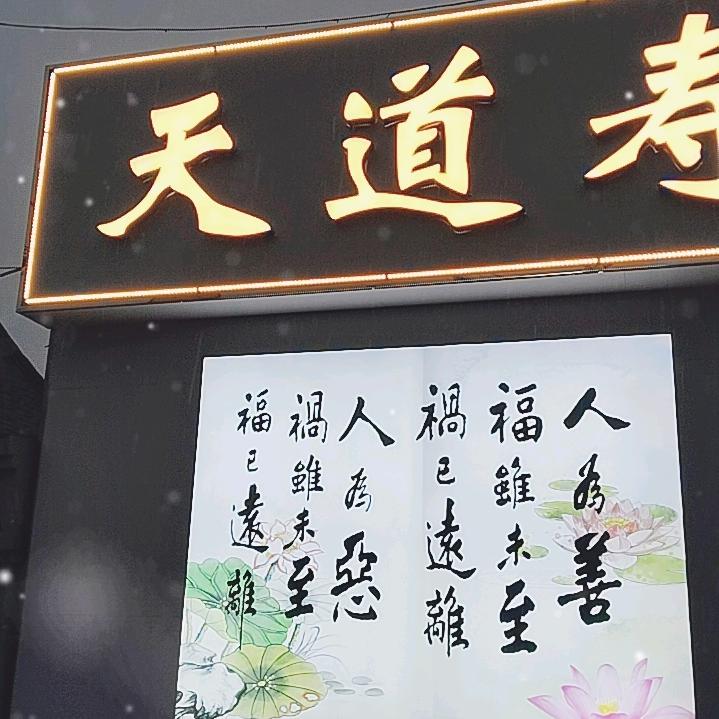 天道寿
人為善
福雖未至
禍已遠離
人為惡
禍雖未至
福已遠離